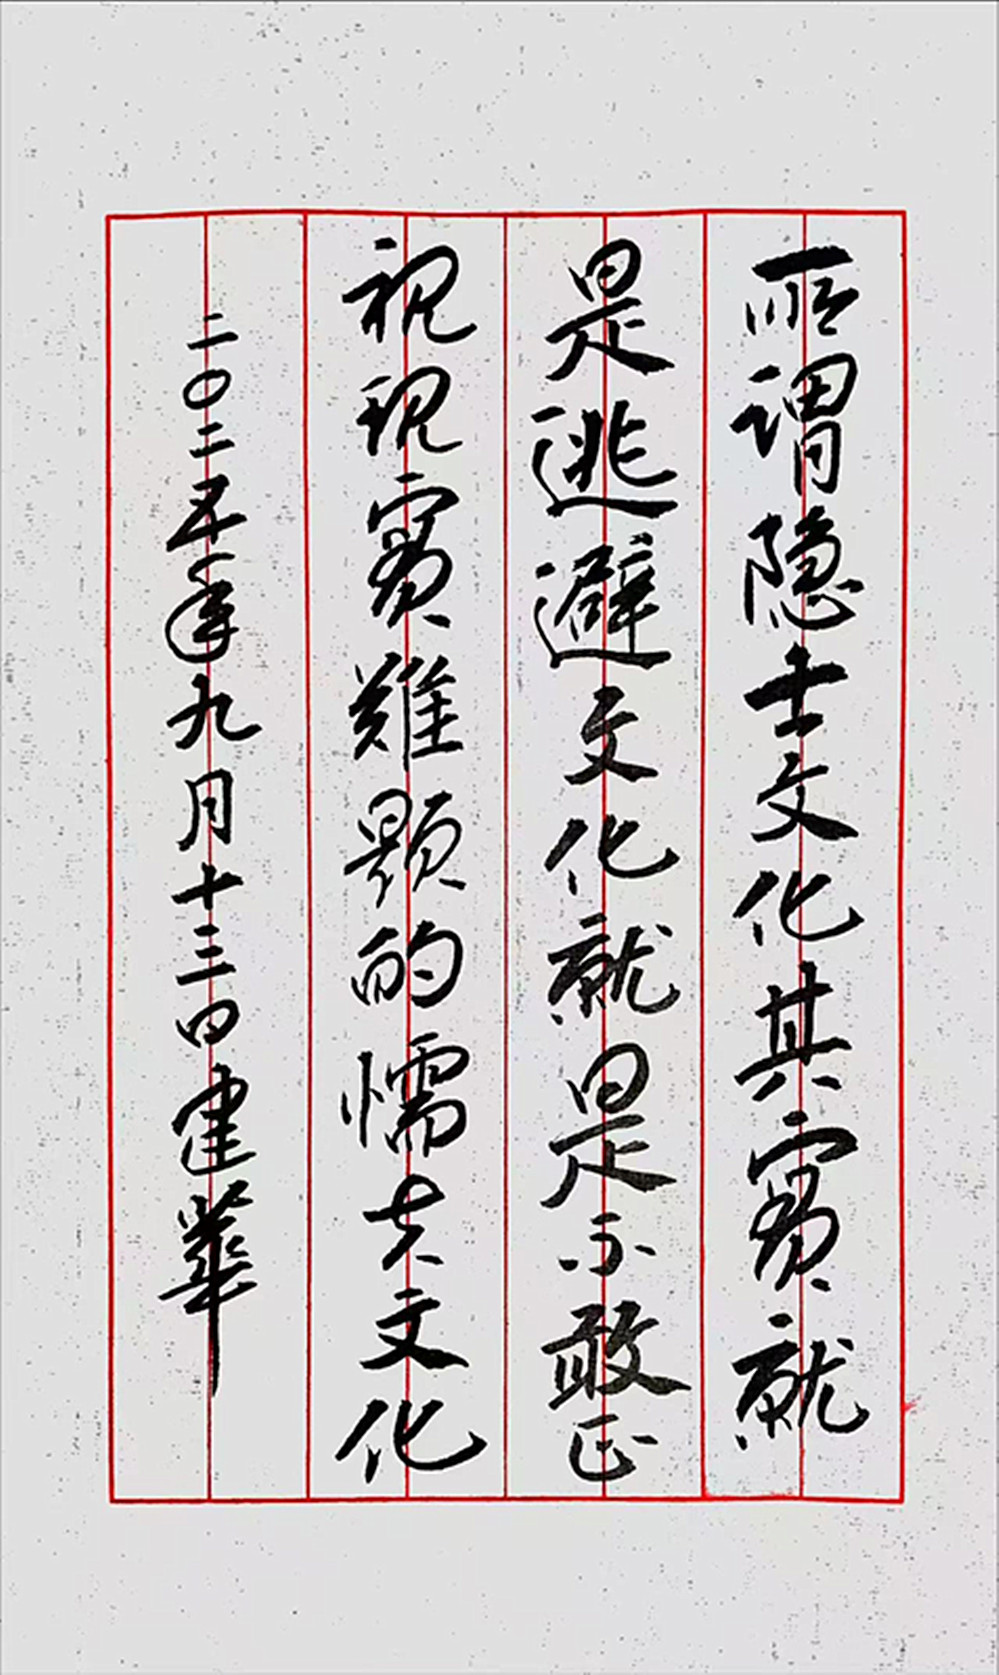 所谓隐士文化其實就
是逃避文化就是不敢正
视现實難题的懦夫文化
二〇二五年九月十三日建華